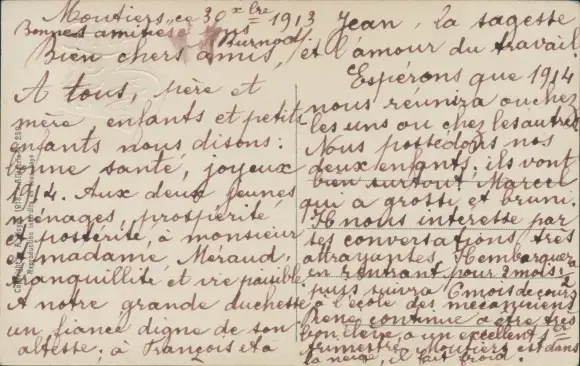 Moutiers, ce 30 xbre 1913
Bonnes amitiés
Burnod
Bien chers amis,
A tous, père et
mère enfants et petits
enfants nous disons:
bonne santé, joyeux
1914. Aux deux jeunes
ménages, prospérité
et postérité, à monsieur
et madame Méraud,
tranquillité et vie paisible
A notre grande duchesse
un fiancé digne de son
altesse; à François et à
Jean, la sagesse
et l'amour du travail.
Espérons que 1914
nous réunira ou chez
les uns ou chez les autres
Nous possédons nos
deux enfants; ils vont
bien surtout Marcel
qui a grossi et bruni.
Il nous intéresse par
ses conversations très
attrayantes. Il embarquera
en rentrant pour 2 mois 1/2
puis suivra 6 mois de cours
à l'école des mécaniciens
René continue à être très
bon élève, a un excellent 1er
trimestre. Moutiers est dans
la neige, il fait froid.